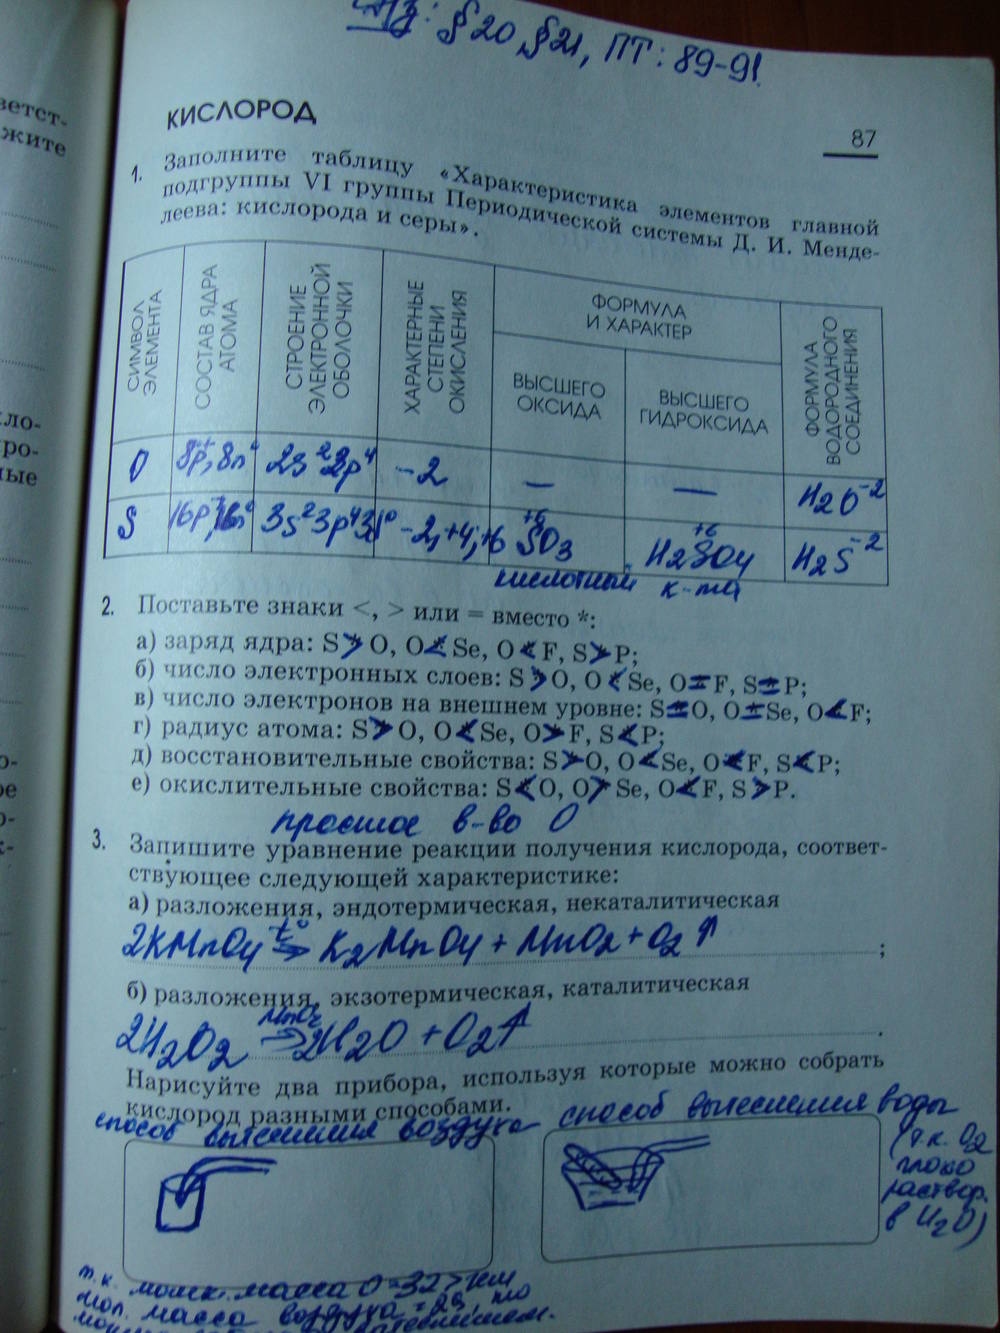 ДЗ: §20, §21, ПТ: 89-91.
КИСЛОРОД
87
1. Заполните таблицу «Характеристика элементов главной
подгруппы VI группы Периодической системы Д. И. Менде-
леева: кислорода и серы».
СИМВОЛ ЭЛЕМЕНТА
СОСТАВ ЯДРА АТОМА
СТРОЕНИЕ ЭЛЕКТРОННОЙ ОБОЛОЧКИ
ХАРАКТЕРНЫЕ СТЕПЕНИ ОКИСЛЕНИЯ
ФОРМУЛА И ХАРАКТЕР
ВЫСШЕГО ОКСИДА
ВЫСШЕГО ГИДРОКСИДА
ФОРМУЛА ВОДОРОДНОГО СОЕДИНЕНИЯ
O 8p⁺, 8n⁰ 2s²2p⁴ -2 — — H2O⁻²
S 16p⁺, 16n⁰ 3s²3p⁴3d⁰ -2, +4, +6 +6 SO3 +6 H2SO4 H2S⁻²
кислотный к-та
2. Поставьте знаки <, > или = вместо *:
а) заряд ядра: S > O, O < Se, O < F, S > P;
б) число электронных слоев: S > O, O < Se, O = F, S = P;
в) число электронов на внешнем уровне: S = O, O = Se, O < F;
г) радиус атома: S > O, O < Se, O > F, S < P;
д) восстановительные свойства: S > O, O < Se, O < F, S < P;
е) окислительные свойства: S < O, O > Se, O < F, S > P.
простое в-во O
3. Запишите уравнение реакции получения кислорода, соответ-
ствующее следующей характеристике:
а) разложения, эндотермическая, некаталитическая
2KMnO4 t° → K2MnO4 + MnO2 + O2↑ ;
б) разложения, экзотермическая, каталитическая
2H2O2 MnO2 → 2H2O + O2↑ .
Нарисуйте два прибора, используя которые можно собрать
кислород разными способами.
способ вытеснения воздуха
способ вытеснения воды
(т.к. O2
плохо
раствор.
в H2O)
т.к. молек. масса O = 32 > чем
мол. масса воздуха = 29, то
ветст-
жите
ло-
ро-
ные